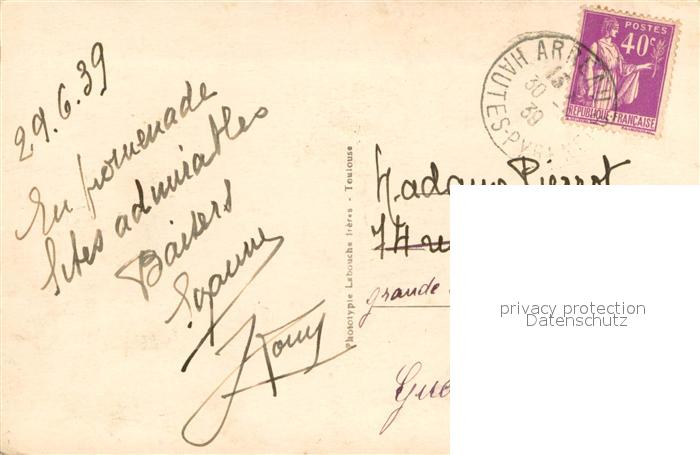 29.6.39
En promenade
Sites admirables
Baisers
Suzanne
Phototypie Labouche frères - Toulouse
POSTES
40c
REPUBLIQUE FRANÇAISE
ARREAU
HAUTES-PYRÉNÉES
30
39
Madame Pierrot
grande
privacy protection
Datenschutz